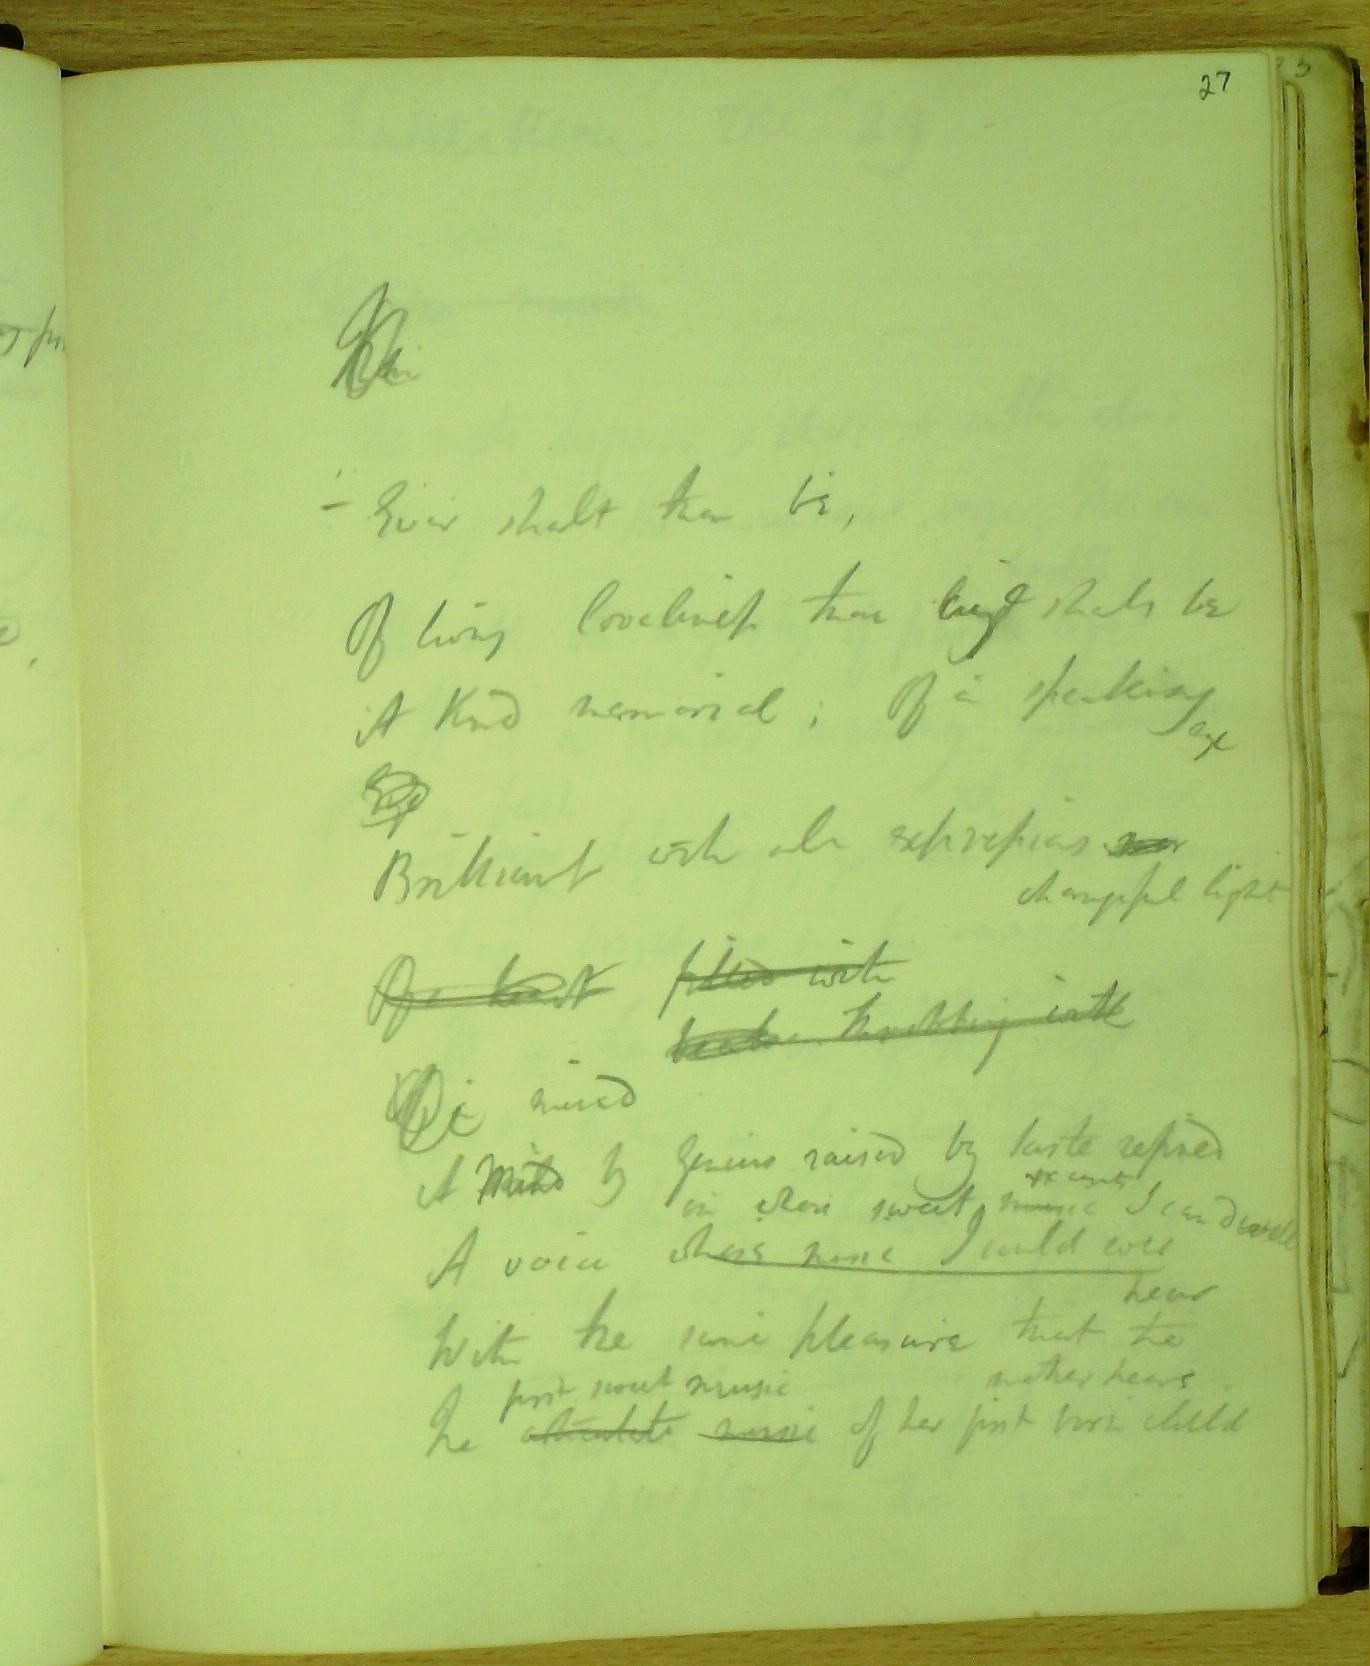 27
Ever shalt thou be,
Of living loveliness thou shalt be
A Kind memorial; Of a speaking
eye
Eye
Brilliant with all expressions
changeful light
Of a heart filled with
throbbing with
mind
A Mind by genius raised by taste refined
in whose sweet music accents I can dwell
A voice whose music I could ever
hear
With the same pleasure that the
first sweet music mother hears
The music of her first born child